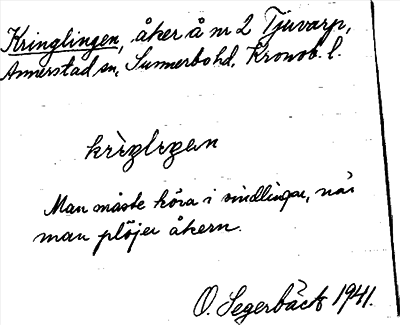 Kringlingen, åker å nr 2 Tjuvarp,
Annerstad sn, Sunnerbo hd, Kronob. l.
krìŋliŋan
Man måste köra i vindlingar, när
man plöjer åkern.
O. Segerbäck 1941.